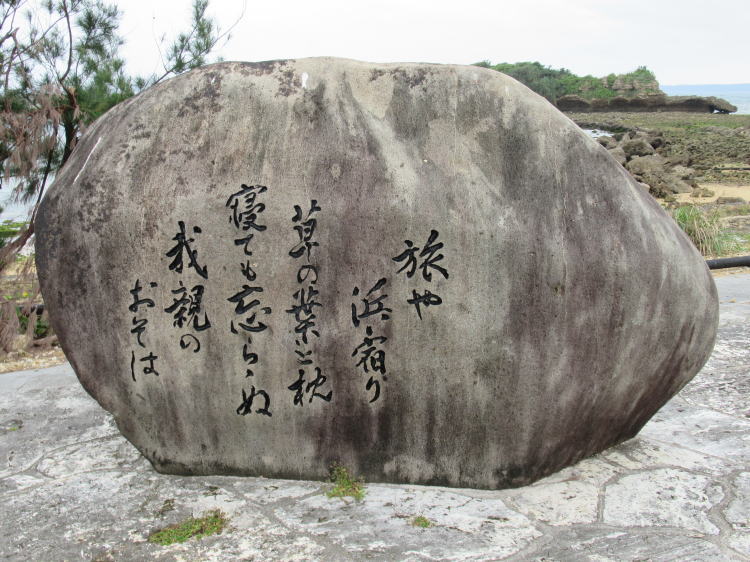 旅や
浜宿り
草の葉と枕
寝ても忘らぬ
我親の
おそは